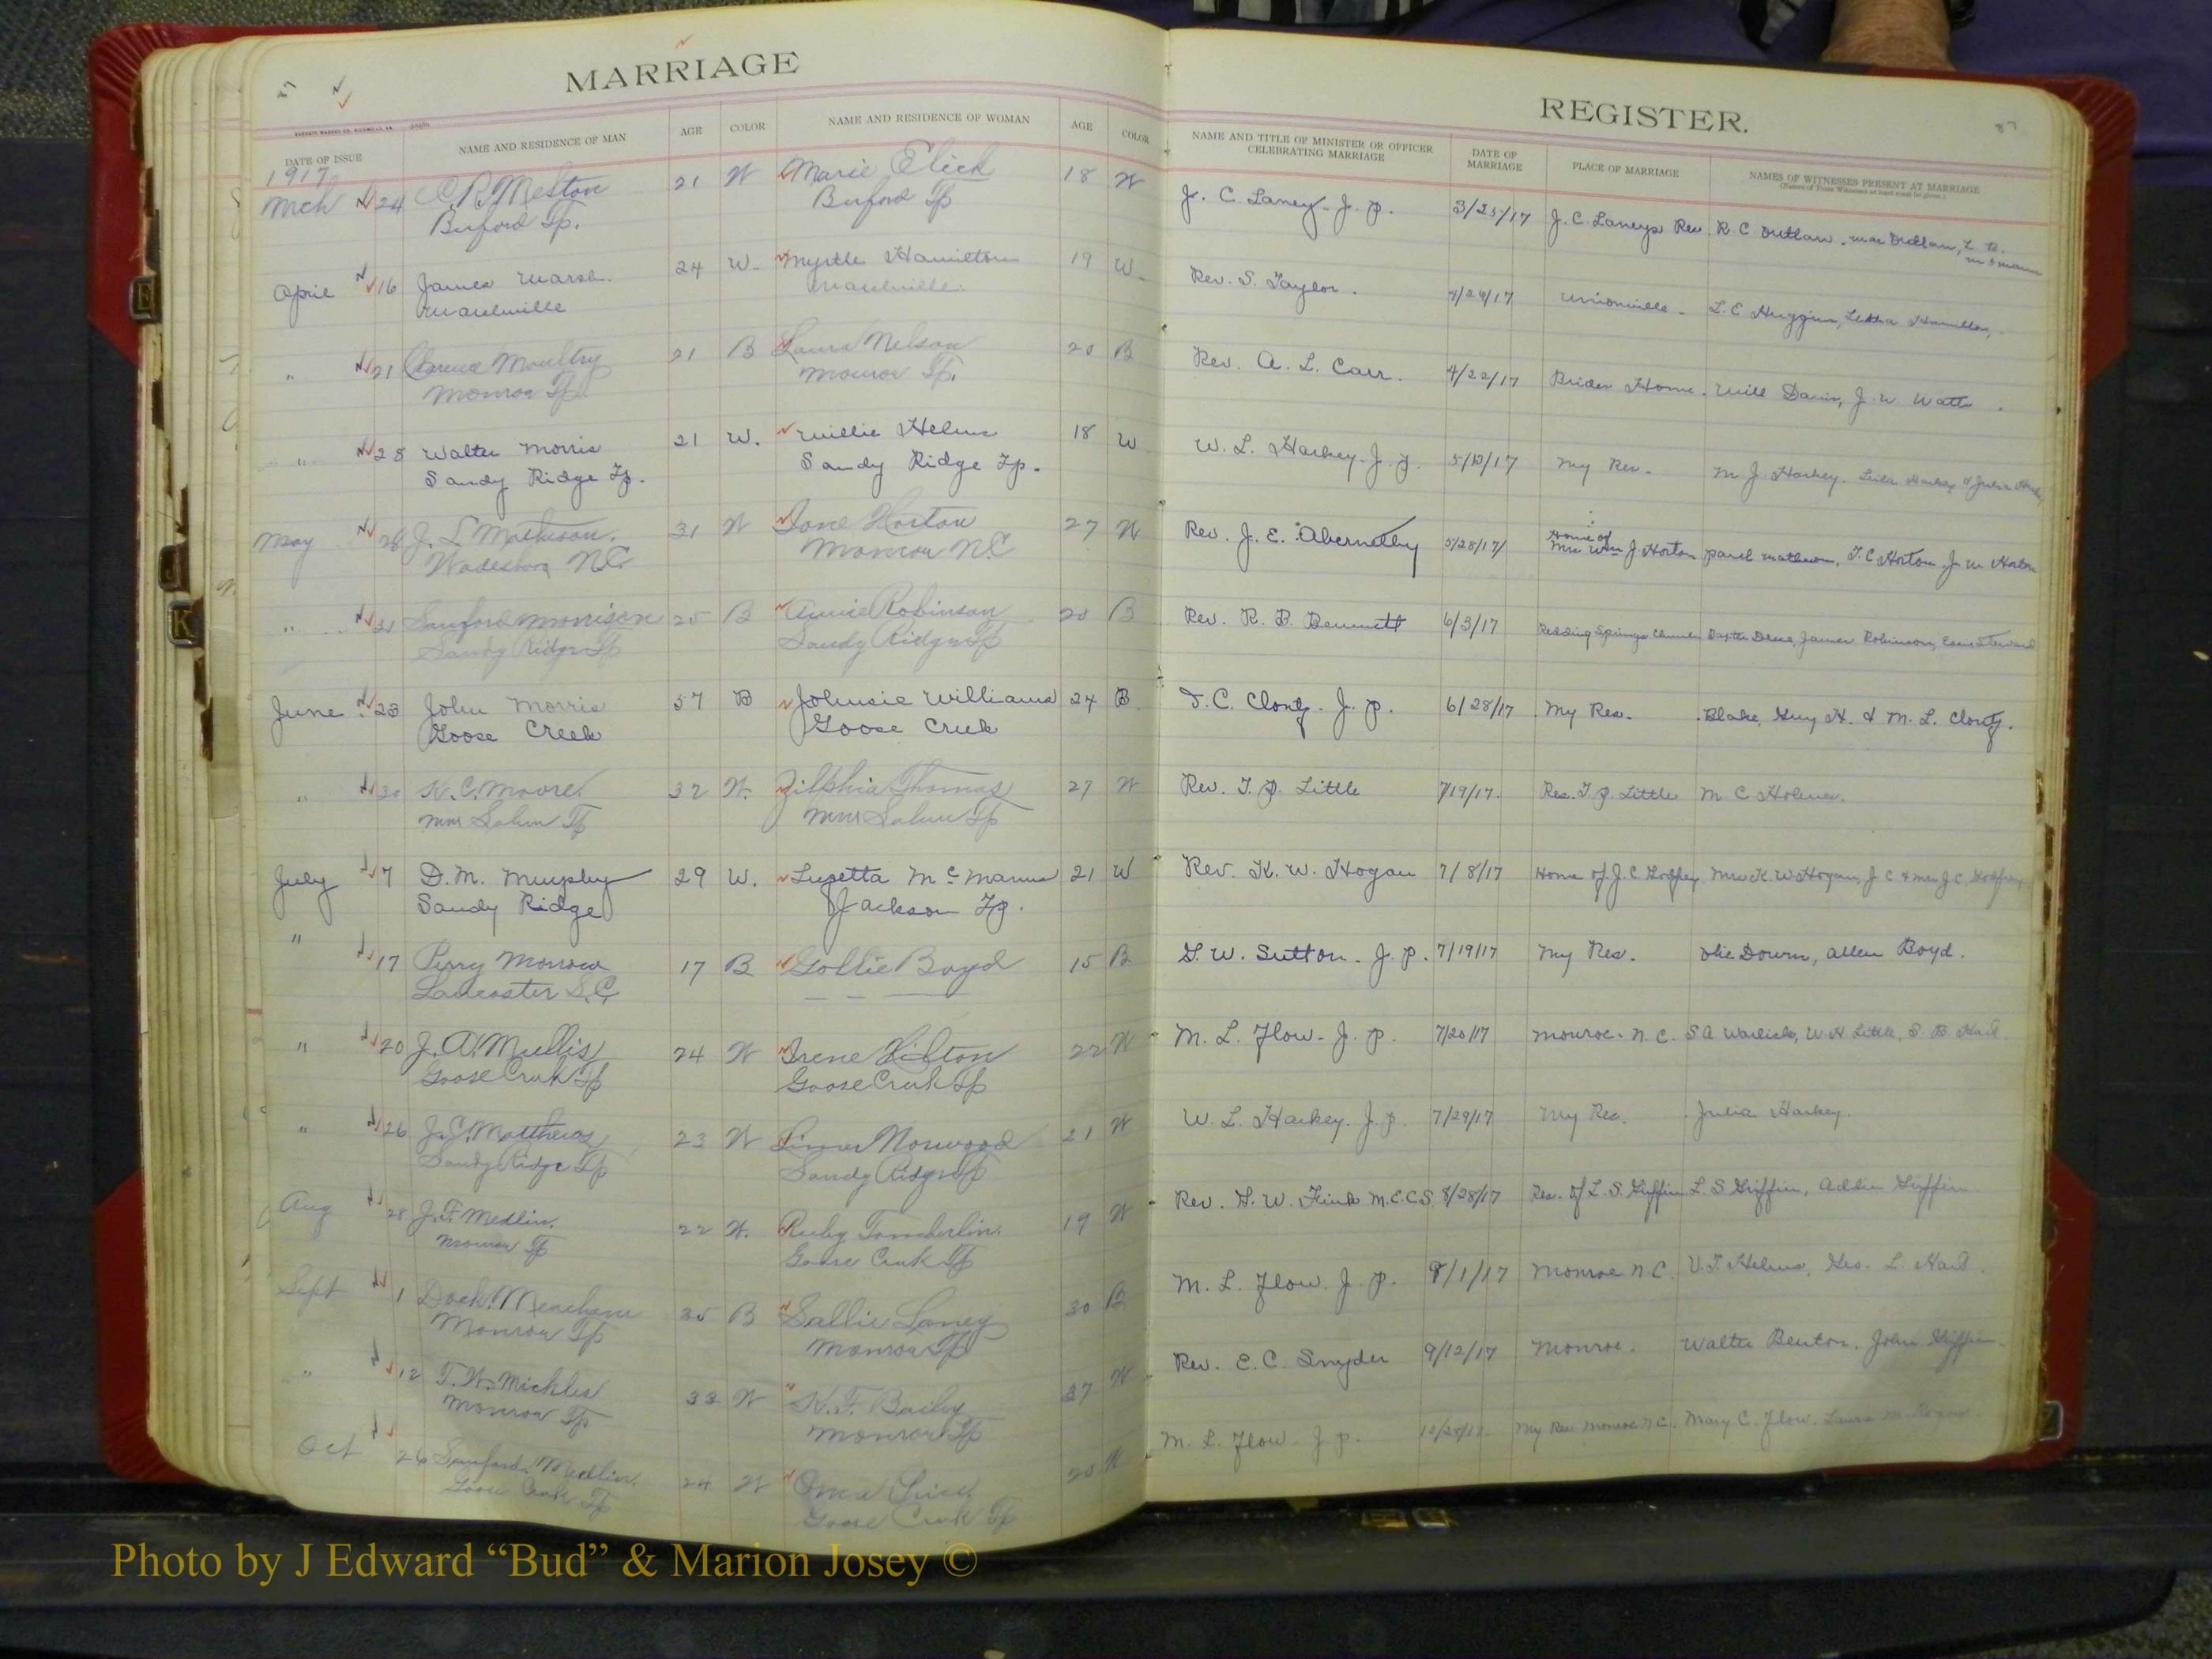 MARRIAGE
REGISTER.
87
DATE OF ISSUE
NAME AND RESIDENCE OF MAN
AGE
COLOR
NAME AND RESIDENCE OF WOMAN
AGE
COLOR
NAME AND TITLE OF MINISTER OR OFFICER
CELEBRATING MARRIAGE
DATE OF
MARRIAGE
PLACE OF MARRIAGE
NAMES OF WITNESSES PRESENT AT MARRIAGE
1917
Mch 24 C. R. Melton 21 W Marie Elick 18 W J. C. Laney. J. P. 3/25/17 J. C. Laneys Res R. C. Outlaw, Mae Outlaw,
Buford Tp. Buford Tp
April 16 James Marsh 24 W. Myrtle Hamilton 19 W Rev. S. Taylor. Unionville. L. E. Huggins, Hamilton,
Marshville Marshville
" 21 Moultry 21 B Laura Nelson 20 B Rev. A. L. Carr. 4/22/17 Brides Home. Will Davis, J. W Watts.
Monroe Tp. Monroe Tp.
" 28 Walter Morris 21 W. Willie Helms 18 W W. L. Harkey. J. P. 5/13/17 My Res. M. J. Harkey. Harkey & Julia
Sandy Ridge Tp. Sandy Ridge Tp.
May 26 J. L. Matheson. 31 W Jane Horton 27 W Rev. J. E. Abernethy 5/28/17 Home of Mrs Wm J Horton T. C Horton, J. W. Horton
Wadesboro N.C. Monroe N.C
" 31 Sanford Morrison 25 B Annie Robinson 20 B Rev. R. B. Bennett 6/3/17 Redding Springs Church James Robinson,
Sandy Ridge Tp Sandy Ridge Tp
June 23 John Morris 57 B Johnsie Williams 24 B T. C. Clontz. J. P. 6/28/17 My Res. Blake, Guy H. & M. L. Clontz.
Goose Creek Goose Creek
" 30 K. C. Moore 32 W. Zilphia Thomas 27 W Rev. T. P. Little 7/19/17. Res. T. P. Little M. C Holmes.
New Salem Tp New Salem Tp
July 7 D. M. Murphy 29 W. Luzetta McManus 21 W Rev. K. W. Hogan 7/8/17 Home of J. C Godfrey Mrs K. W Hogan, J C & Mrs J. C. Godfrey
Sandy Ridge Jackson Tp.
" 17 Perry Morrow 17 B Gollie Boyd 15 B G. W. Sutton. J. P. 7/19/17 My Res. Allen Boyd.
Lancaster S.C.
" 20 J. A. Mullis 24 W Irene Hilton 22 W M. L. Flow. J. P. 7/20/17 Monroe. N. C. S A Warlick, W. H Little, S. B Hart
Goose Creek Tp Goose Creek Tp
" 26 J. C. Matthews 23 W Norwood 21 W W. L. Harkey. J. P. 7/29/17 My Res. Julia Harkey.
Sandy Ridge Tp Sandy Ridge Tp
Aug 28 J. F. Medlin. 22 W. Ruby Tomberlin. 19 W Rev. G. W. Fink M.E.C.S 8/28/17 Res. of L. S. Griffin L. S Griffin, Addie Griffin
Monroe Tp Goose Creek Tp
Sept 1 Dock Meacham 35 B Sallie Laney 30 B M. L. Flow. J. P. 9/1/17 Monroe N.C. V. T. Helms, Geo. L. Hart
Monroe Tp Monroe Tp
" 12 T. W. Mickles 33 W K. F. Bailey 37 W Rev. E. C. Snyder 9/12/17 Monroe. Walter Benton, John Griffin
Monroe Tp Monroe Tp
Oct 26 Sanford Medlin. 24 W 20 W M. L. Flow J P. My Res. Monroe N.C. Mary C. Flow,
Goose Creek Tp Goose Creek Tp
E
K
Photo by J Edward “Bud” & Marion Josey ©